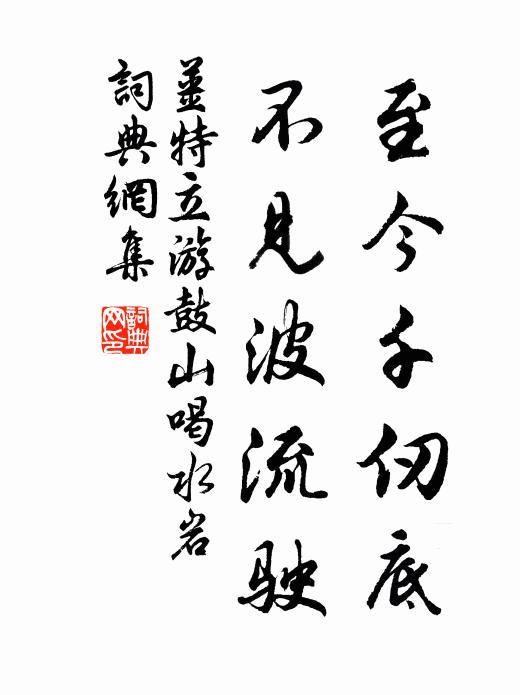 至今千仞底
不見波流駛
薑特立游鼓山喝水岩
詞典網集
詞典網印